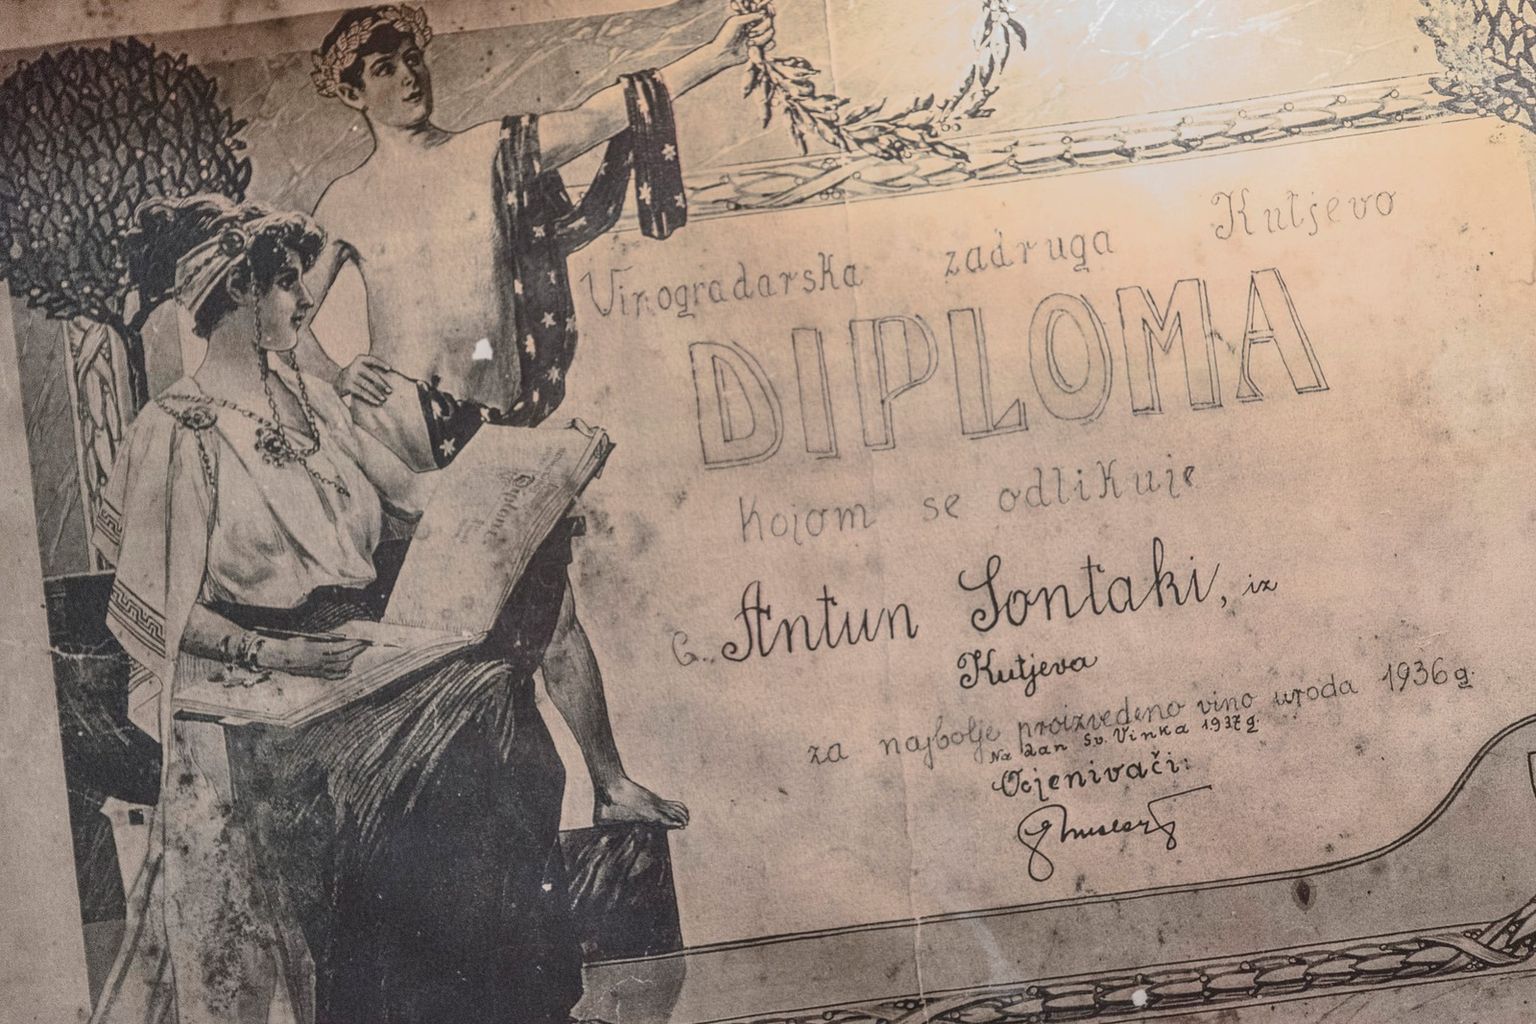 Vinogradarska zadruga Kutjevo
DIPLOMA
Kojom se odlikuje
G. Antun Sontaki, iz
Kutjeva
za najbolje proizvedeno vino uroda 1936 g.
Na dan Sv. Vinka 1937 g.
Ocjenivači:
Diplome